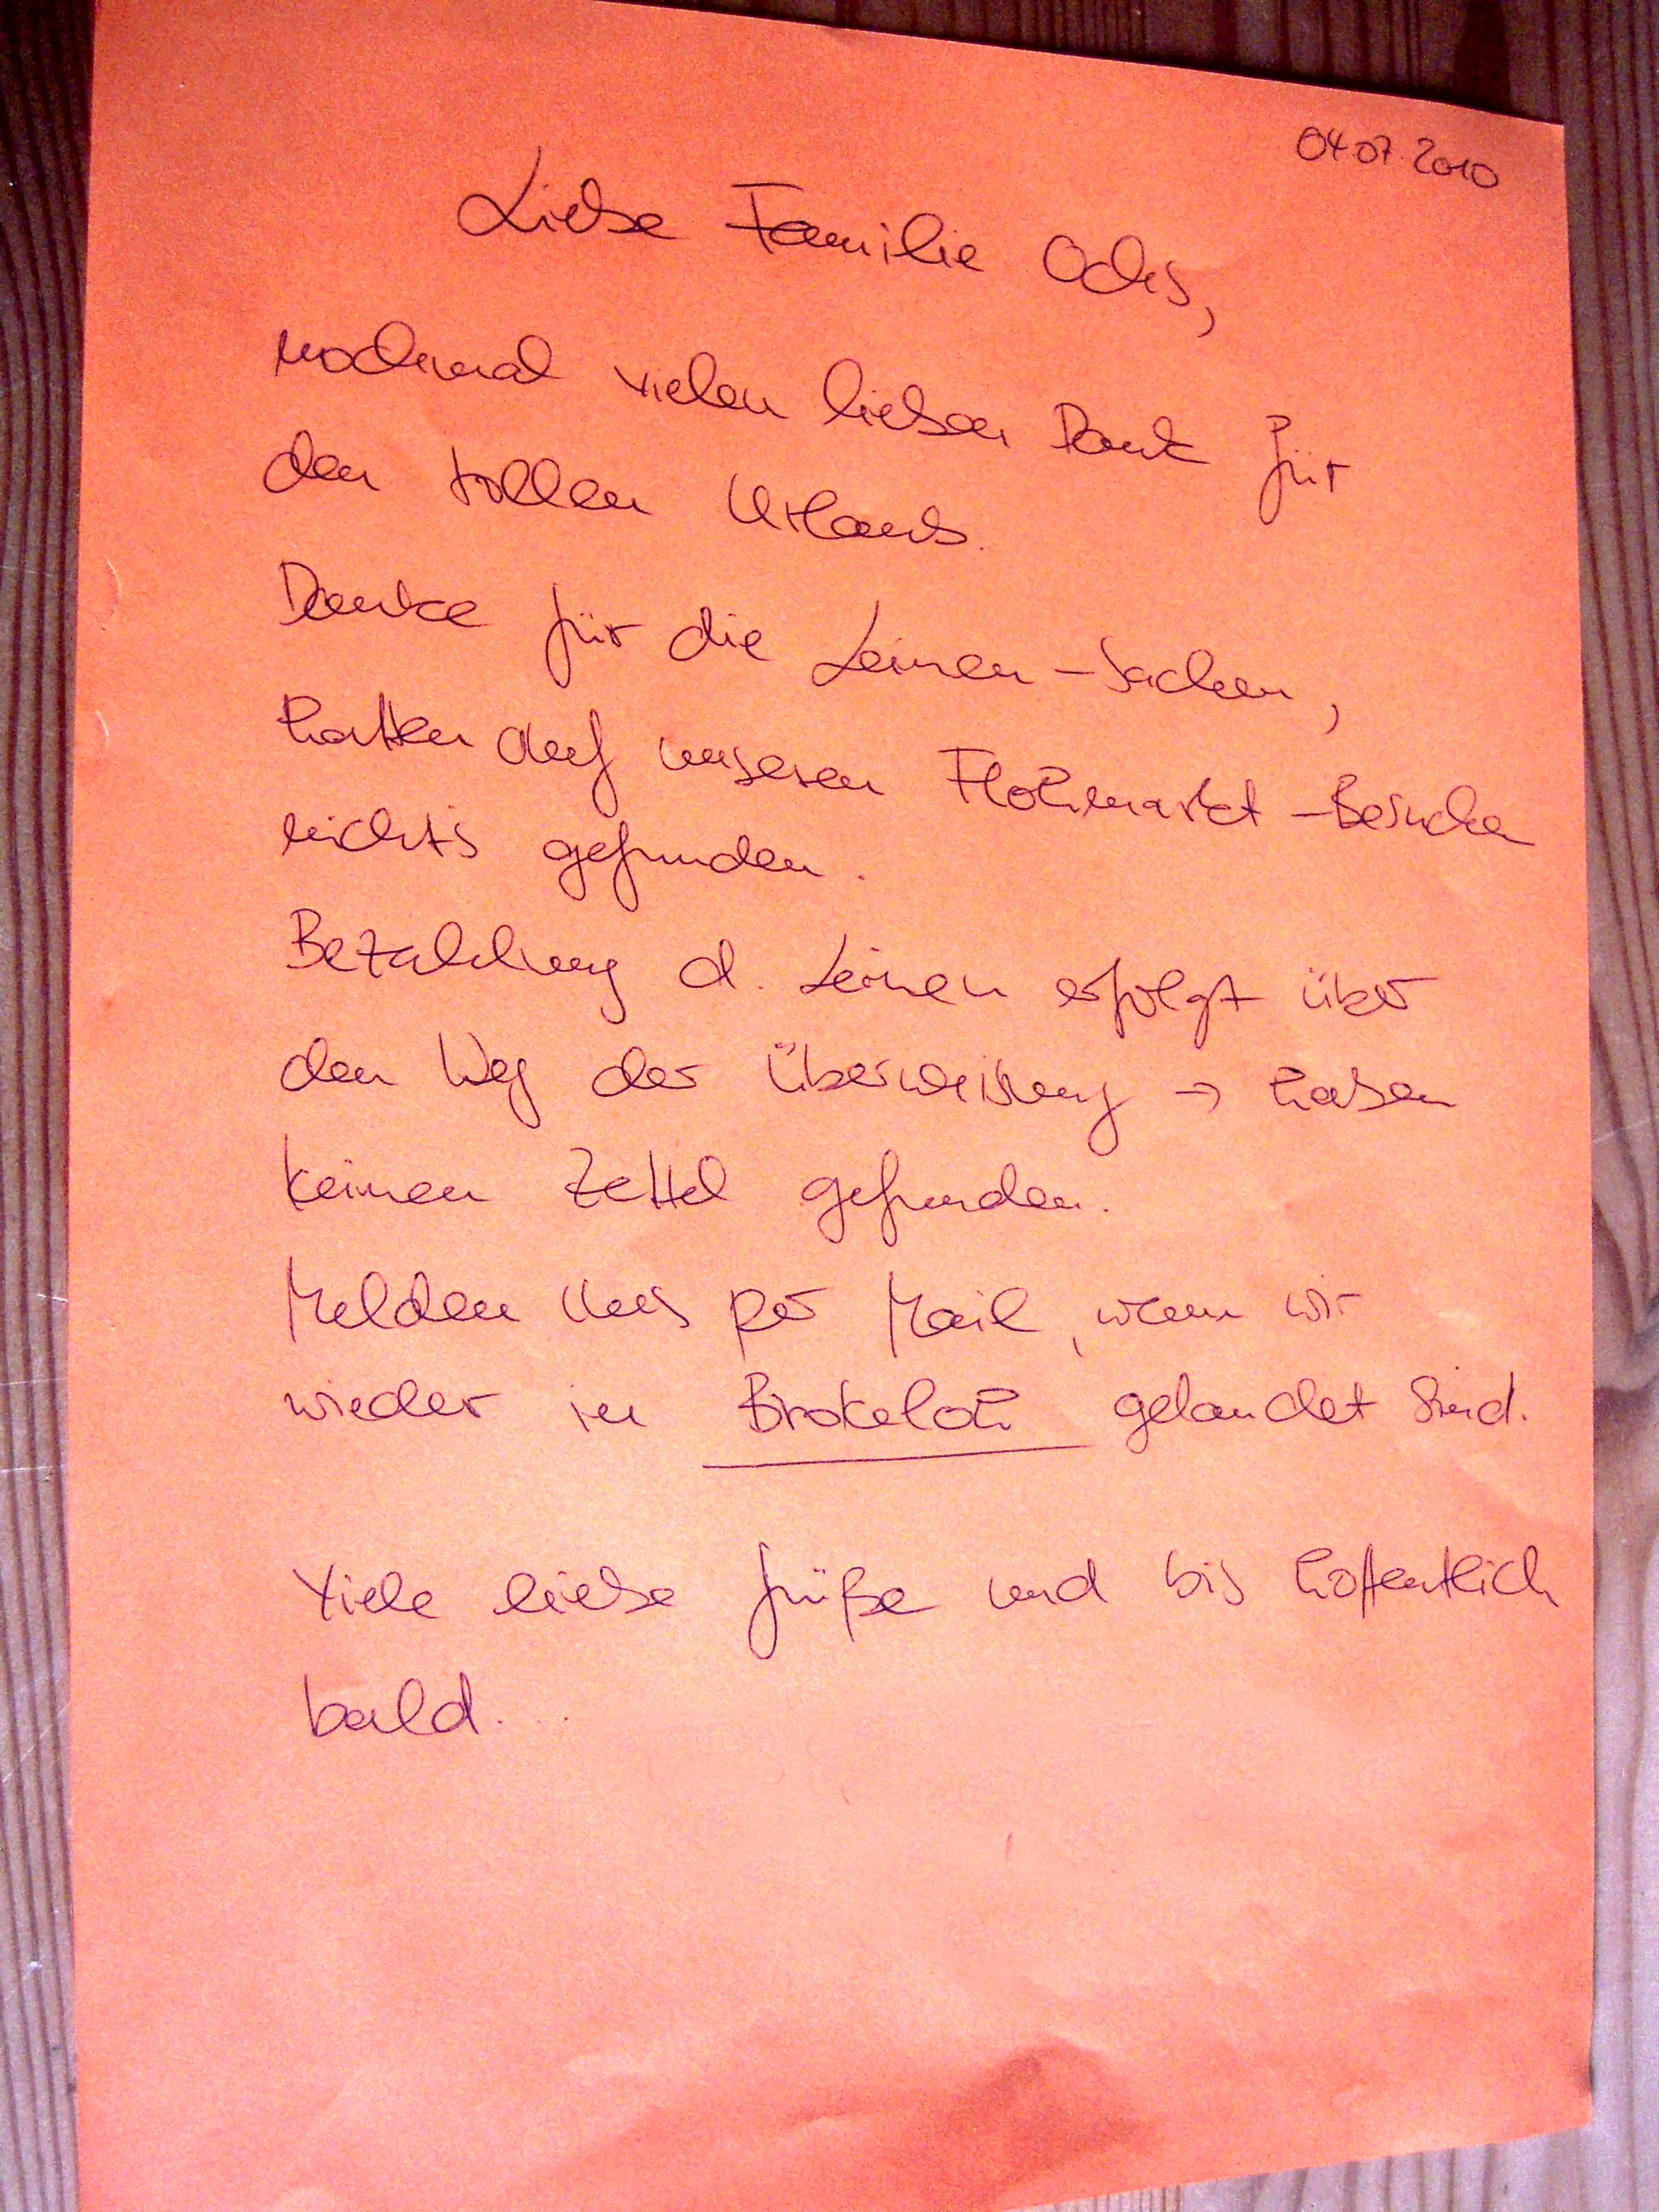 04.07.2010
Liebe Familie Ochs,
nochmal vielen lieben Dank für
den tollen Urlaub.
Danke für die Leinen-Sachen,
hatten auf unseren Flohmarkt-Besuchen
nichts gefunden.
Bezahlung d. Leinen erfolgt über
den Weg der Überweisung → haben
keinen Zettel gefunden.
Melden uns per Mail, wenn wir
wieder in Brokeloh gelandet sind.
Viele liebe Grüße und bis hoffentlich
bald.